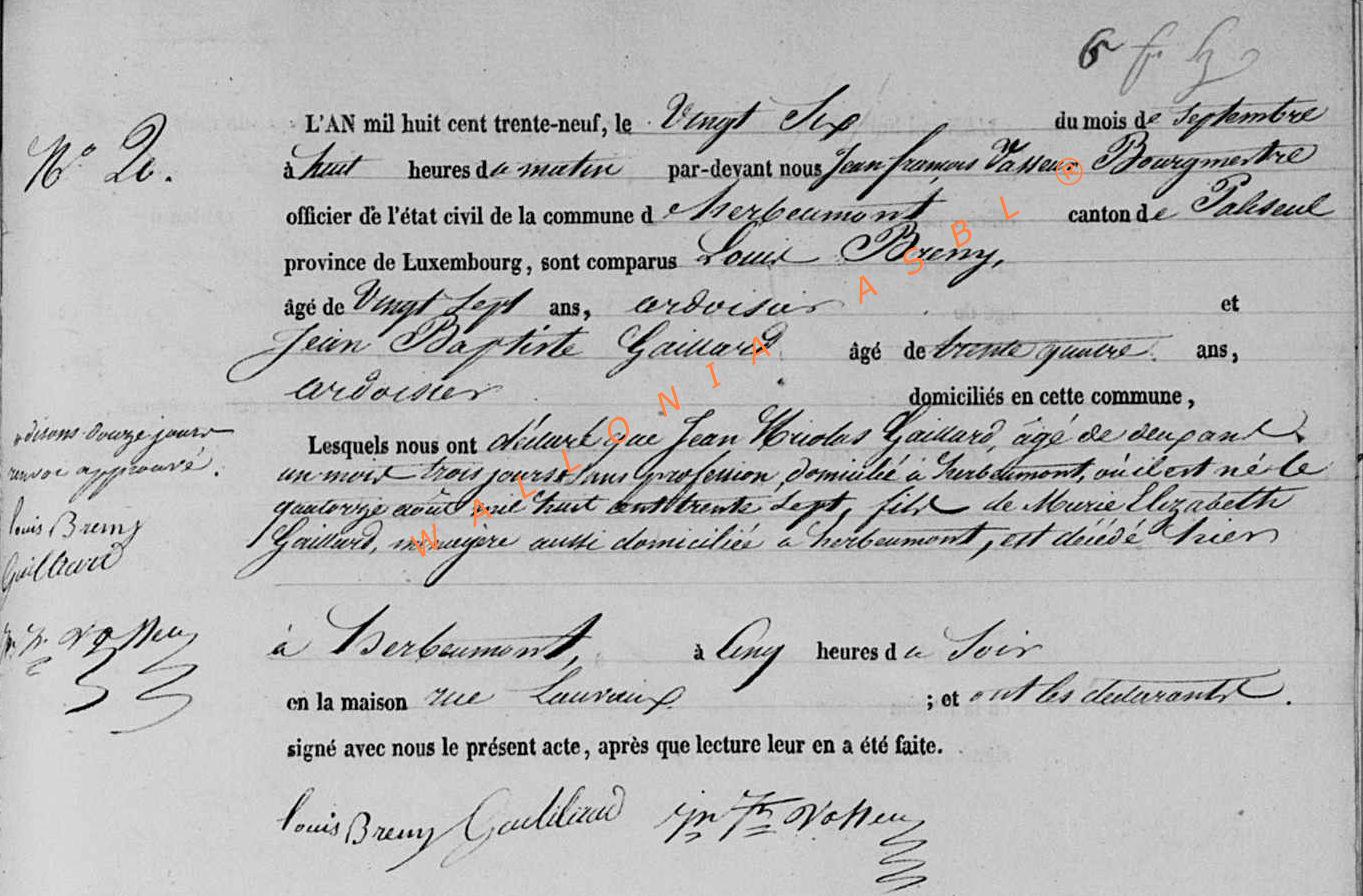 6
N° 26.
L'AN mil huit cent trente-neuf, le Vingt Six du mois de Septembre
à huit heures du matin par-devant nous Jean françois Vasseur Bourgmestre
officier de l'état civil de la commune d'herbeumont canton de Paliseul
province de Luxembourg, sont comparus Louis Bremy,
âgé de Vingt Sept ans, ardoisier et
Jean Baptiste Gaillard âgé de trente quatre ans,
ardoisier domiciliés en cette commune,
Lesquels nous ont déclaré que Jean Nicolas Gaillard, âgé de deux ans
un mois trois jours sans profession, domicilié à herbeumont, où il est né le
quatorze août mil huit cent trente Sept, fils de Marie Elizabeth
Gaillard, ménagère aussi domiciliée à herbeumont, est décédé hier
à Herbeumont, à Cinq heures du Soir
en la maison rue Lauvaux ; et ont les déclarants
signé avec nous le présent acte, après que lecture leur en a été faite.
disons douze jours
renvoi approuvé.
louis Bremy
Gailliard
louis Bremy Gailliard
WALLONIA ASBL ®